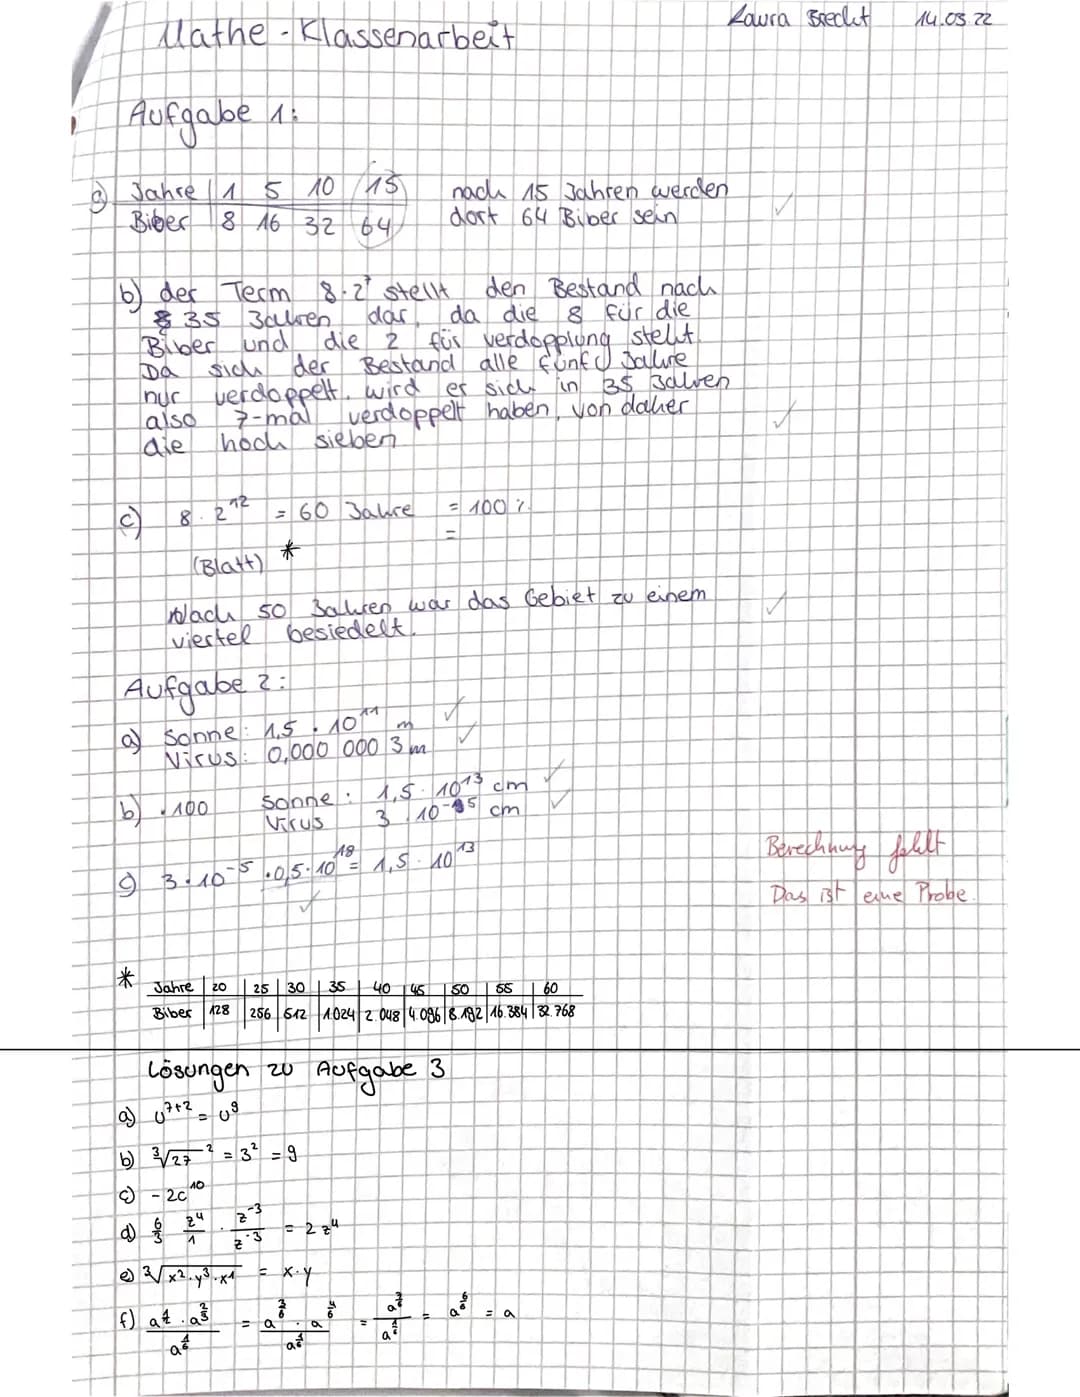 Laura Brecht 14.03.22
Mathe - Klassenarbeit
Aufgabe 1:
a) Jahre | 1 5 10 15 nach 15 Jahren werden
Biber | 8 16 32 64 dort 64 Biber sein ✓
b) der Term 8·2⁷ stellt den Bestand nach
35 Jahren dar, da die 8 für die
Biber und die 2 für verdopplung steht.
Da sich der Bestand alle fünf Jahre
nur verdoppelt, wird er sich in 35 Jahren
also 7-mal verdoppelt haben, von daher ✓
die hoch sieben
c) 8·2¹² = 60 Jahre = 100 %
=
(Blatt) *
Nach 50 Jahren war das Gebiet zu einem ✓
viertel besiedelt.
Aufgabe 2:
a) Sonne: 1,5 · 10¹¹ m ✓
Virus: 0,000 000 3 m ✓
b) · 100 Sonne: 1,5 · 10¹³ cm ✓
Virus 3 · 10⁻⁵ cm ✓
c) 3·10⁻⁵ · 0,5·10¹⁸ = 1,5 · 10¹³ Berechnung fehlt
✓ Das ist eine Probe.
* Jahre | 20 | 25 | 30 | 35 | 40 | 45 | 50 | 55 | 60
Biber | 128 | 256 | 512 | 1.024 | 2.048 | 4.096 | 8.192 | 16.384 | 32.768
Lösungen zu Aufgabe 3
a) u⁷⁺² = u⁹
b) ³√27² = 3² = 9
c) -2c¹⁰
d) 6/3 · z⁴/1 · z⁻³/z⁻³ = 2z⁴
e) ³√x²·y³·x¹ = x·y